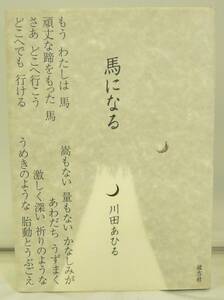 馬になる
川田あひる
もう わたしは 馬
頑丈な蹄をもった 馬
さあ どこへ行こう
どこへでも 行ける
嵩もない 量もない かなしみが
あわだち うずまく
激しく深い 祈りのような
うめきのような 胎動とうぶごえ